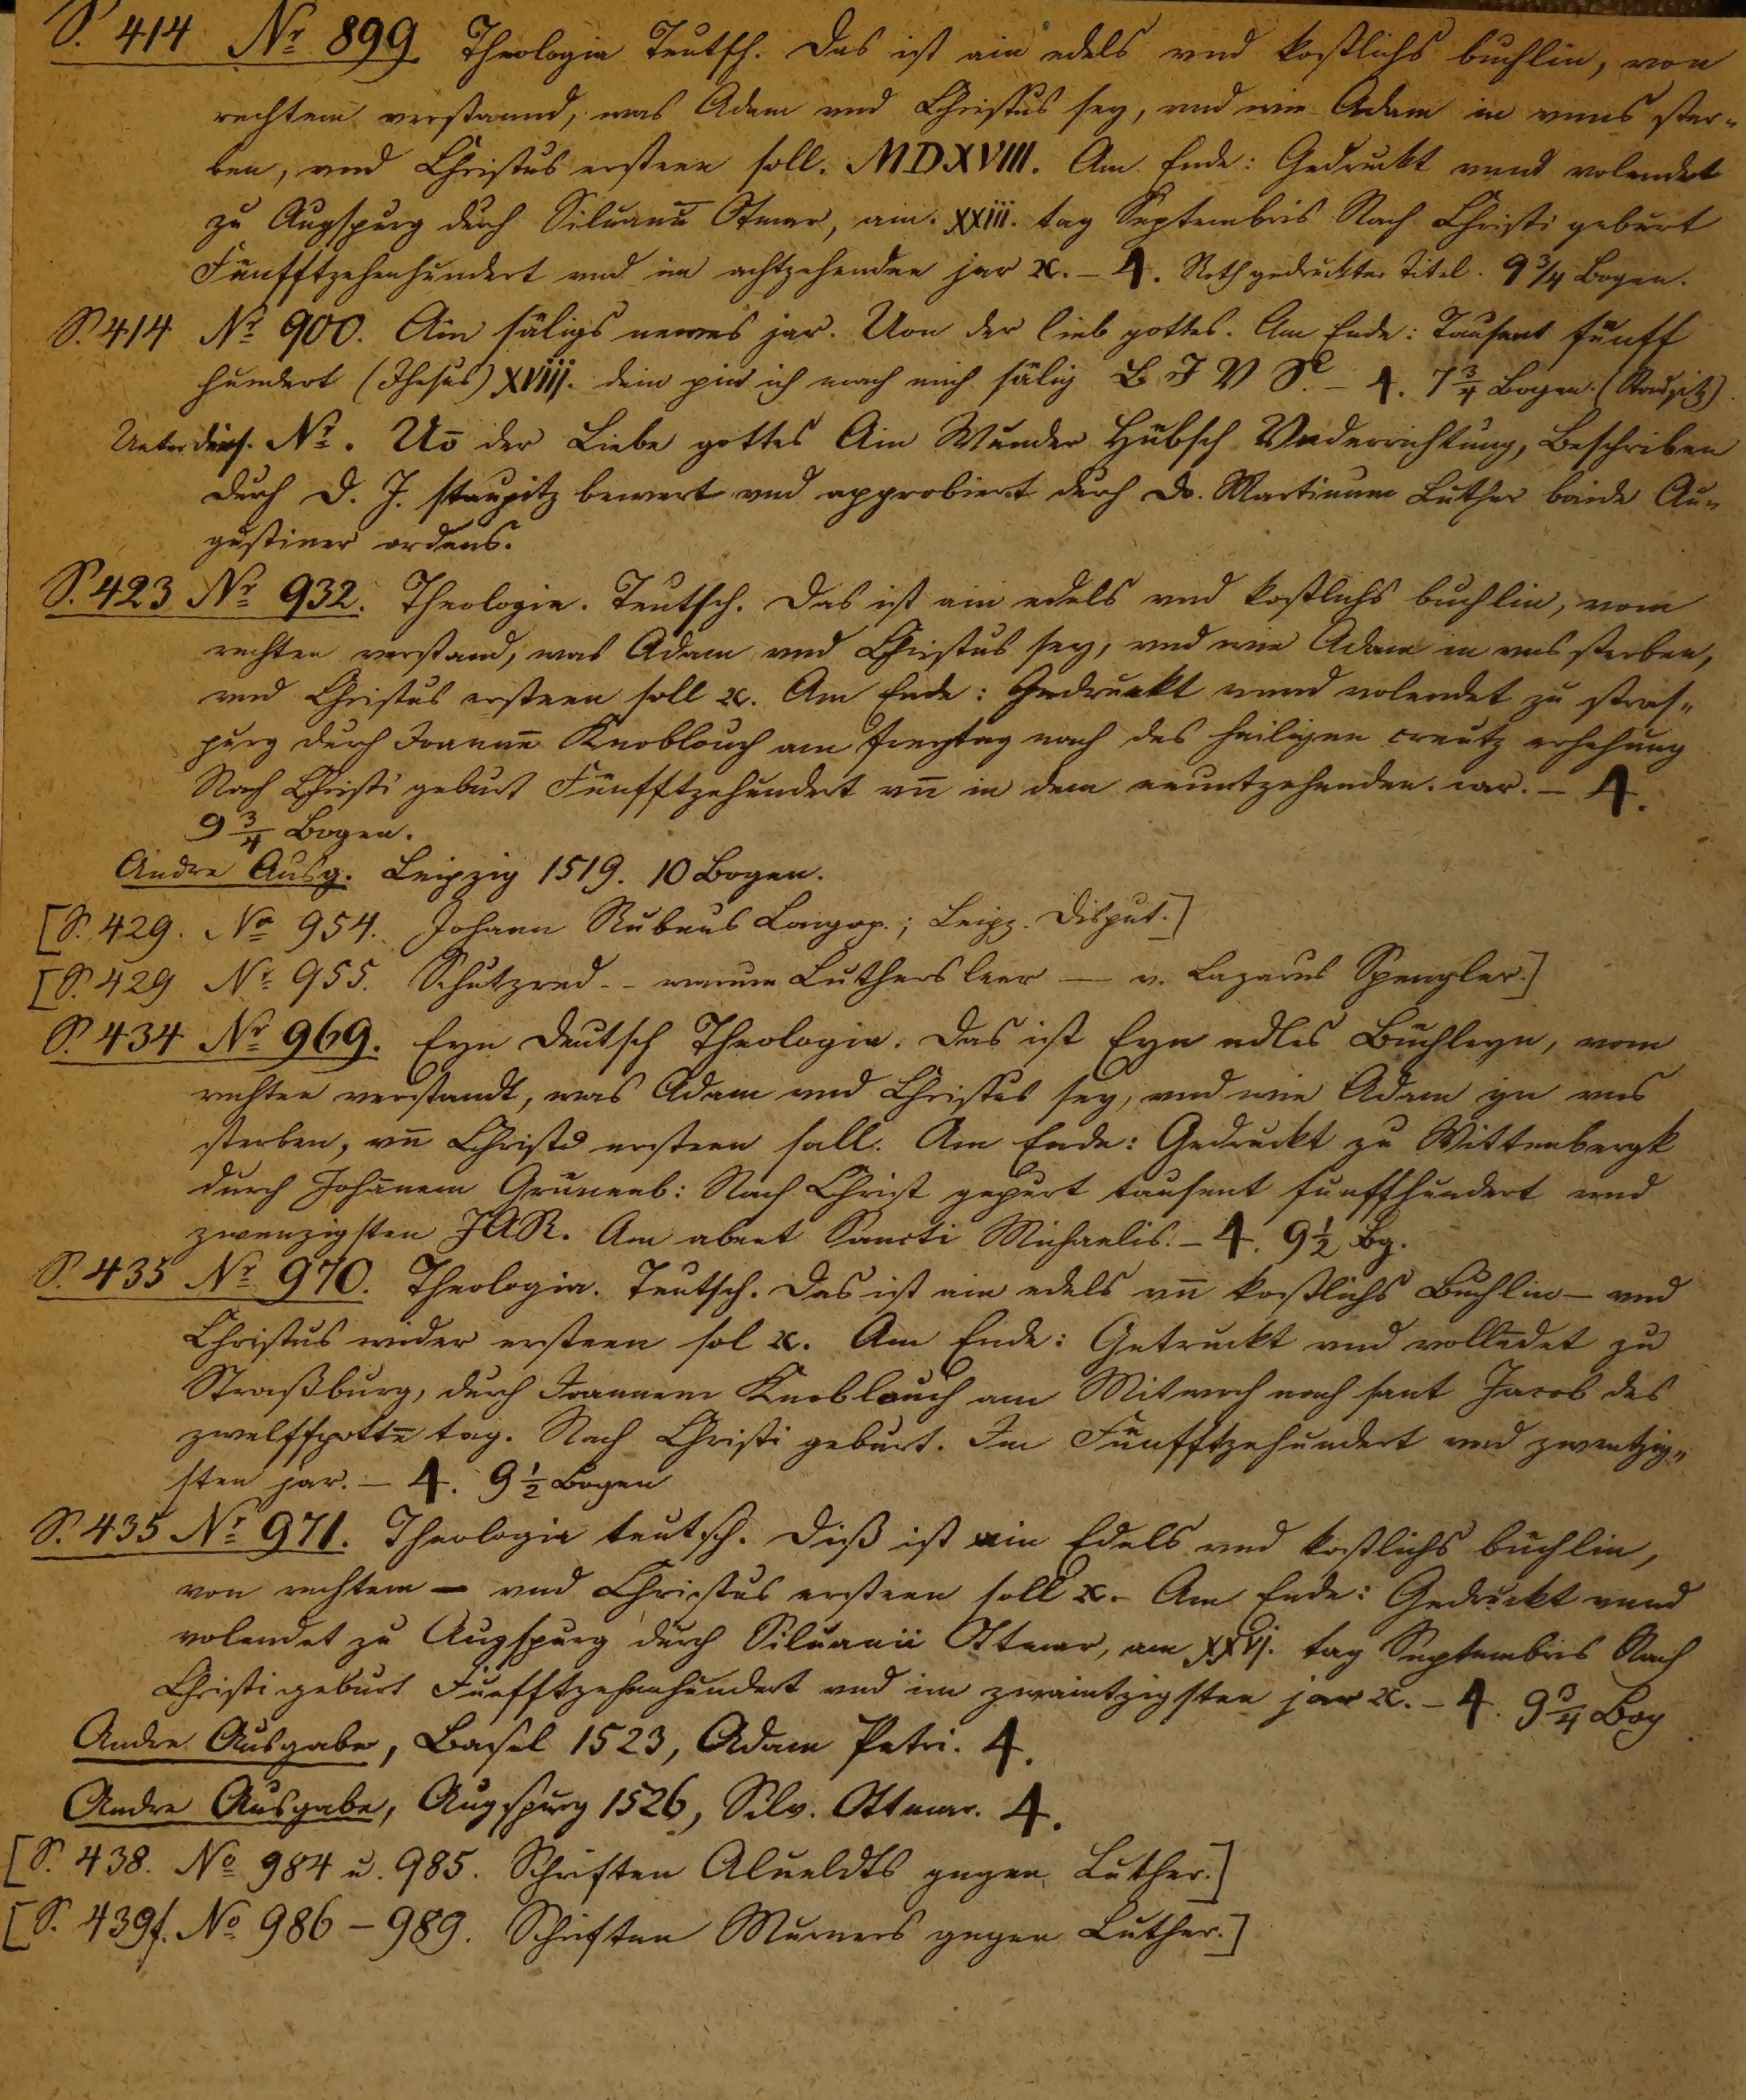 S. 414 Nr 899. Theologia Teutsch. Das ist ain edels vnd kostlichs buchlin, von
rechtem verstannd, was Adam vnd Christus sey, vnd wie Adam in vnns ster-
ben, vnd Christus ersteen soll. MDXVIII. Am Ende: Gedruckt vnnd volendet
zu Augspurg durch Siluanū Otmar, am. xxiii. tag Septembris Nach Christi geburt
Fünfftzehenhundert vnd im achtzehenden jar ꝛc. – 4. Roth gedruckter Titel. 9 3/4 Bogen.
S. 414 Nr 900. Ain säligs newes jar. Uon der lieb gottes. Am Ende: Tausent fünff
hundert (Jhesus) xviij. dein pin ich mach mich sälig B J V S. – 4. 7 3/4 Bogen. (Staupitz)
Unter ders. Nr. Uō der Liebe gottes Ain Wunder Hübsch Vnderrichtung, Beschriben
durch D. J. staupitz bewert vnd approbiert durch Do. Martinum Luther baide Au-
gustiner ordens.
S. 423 Nr 932. Theologia. Teutsch. Das ist ain edels vnd kostlichs buchlin, vom
rechten verstand, was Adam vnd Christus sey, vnd wie Adam in vns sterben,
vnd Christus ersteen soll ꝛc. Am Ende: Gedruckt vnnd volendet zu stras-
purg durch Joannē Knoblouch am freytag nach des heiligen creutz erhehung
Nach Christi geburt Fünfftzehundert vn̄ in dem neuntzehenden. iar. – 4.
9 3/4 Bogen.
Andre Ausg. Leipzig 1519. 10 Bogen.
[S. 429. No 954. Johann Rubeus Longop.; Leipz. Disput.]
[S. 429 Nr 955. Schutzred - - warum Luthers leer — v. Lazarus Spengler.]
S. 434 Nr 969. Eyn deutsch Theologia. Das ist Eyn edles Büchleyn, vom
rechten verstandt, was Adam vnd Christus sey, vnd wie Adam yn vns
sterben, vn̄ Christꝰ ersteen sall. Am Ende: Gedruckt zu Wittenbergk
durch Johānem Grunenb: Nach Christ gepurt tausent funffhundert vnd
zwenzigsten JAR. Am abent Sancti Michaelis. – 4. 9 1/2 Bg.
S. 435 Nr 970. Theologia. Teutsch. Das ist ain edels vn̄ kostlichs Buchlin – vnd
Christus wider ersteen sol ꝛc. Am Ende: Getruckt vnd vollēdet zu
Straßburg, durch Joannem Knoblouch am Mitwoch nach sant Jacob des
zwelffpottē tag. Nach Christi geburt. Im Fünfftzehundert vnd zwentzig-
sten jar. – 4. 9 1/2 Bogen
S. 435 Nr 971. Theologia teutsch. Diß ist ain Edels vnd kostlichs büchlin,
von rechtem – vnd Christus ersteen soll ꝛc. Am Ende: Gedruckt vnnd
volendet zu Augspurg durch Siluanū Ottmar, am xxvj. tag Septembris Nach
Christi geburt Fünfftzehenhundert vnd im zwaintzigsten jar ꝛc. – 4. 9 3/4 Bog
Andre Ausgabe, Basel 1523, Adam Petri. 4.
Andre Ausgabe, Augspurg 1526, Silv. Ottmar. 4.
[S. 438. No 984 u. 985. Schriften Alueldts gegen Luther.]
[S. 439f. No 986 – 989. Schriften Murners gegen Luther.]